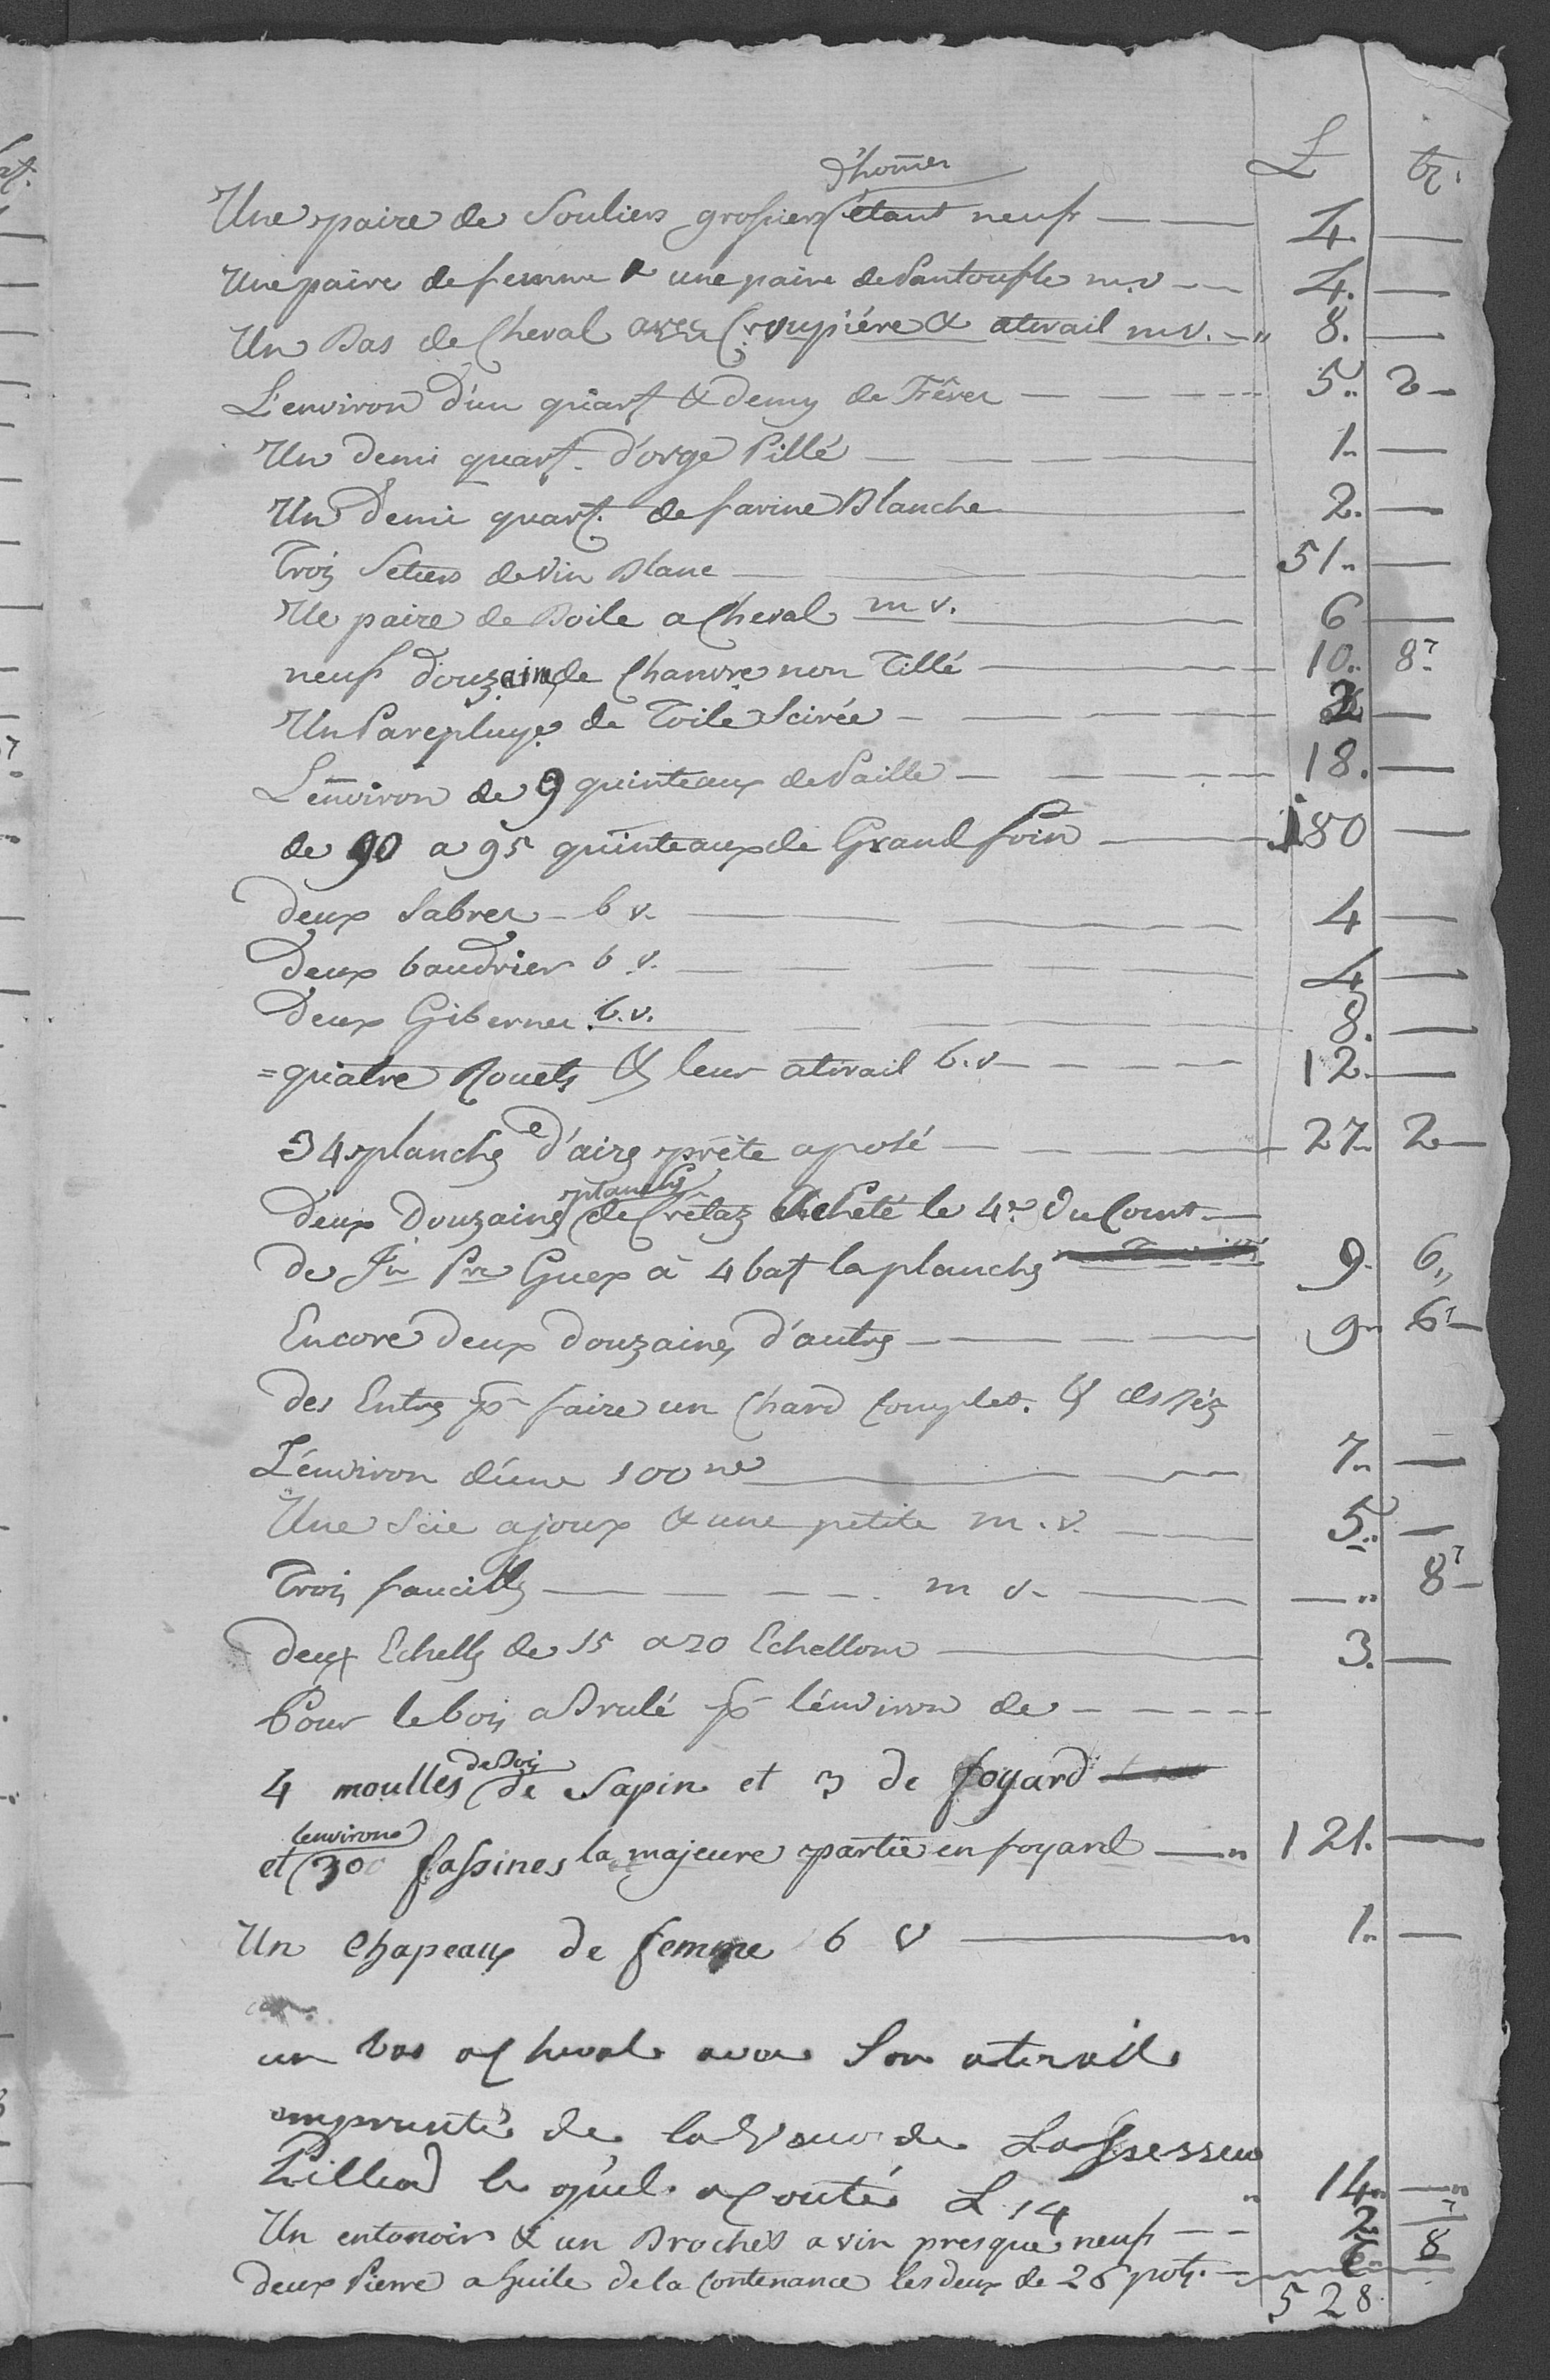 £ bz.
d'homes
Une paire de Souliers grossiers étant neufs 4.
Une paire de femme & une paire de Pantoufle m.v 4.
Un Bas de Cheval avec Croupiére & atirail m.v. 8.
L'environ d'un quart & demy de Fêves 5. 2
Un demi quart. d'orge Pillé 1.
Un Demi quart. de farine Blanche 2.
Trois Setiers de vin Blanc 51.
Ue paire de Boite a Cheval m v. 6
neuf douzaine de Chanvre non Tillé 10. 8
Un Parepluye de Toile Scirée 2
L'environ de 9 quinteaux de Paille 18.
de 90 a 95 quinteaux de Grand foin 180
Deux Sabres b v. 4
Deux baudrier b v. 4
Deux Gibernes b.v. 8.
=quatre Rouets & leur atirail b.v 12.
34 planche d'aires prête a posé 27 2
planches
Deux Douzaines de Crétaz Acheté le 4e. Du Court
de Jn Pre Guex à 4 bat la planches 9. 6
Encore deux douzaines d'autres 9 6
des Entes pr faire un Chard Complet. & des
L'environ d'une 100ne 7
Une Scie a joux & une petite m.v. 5
Trois faucilles m v. 8
deux Echelles de 15 a 20 Echellons 3.
Pour le bois a Brulé pr l'environ de
de Bois
4 moulles de Sapin et 3 de foyard
lenviron
et 300 fassines la majeure partie en foyard 121.
Un chapeaux de femme b v 1
un bas a Cheval avec Son atirail
emprunté de la Veuve de Lassesseur
Pilliod le quel a Couté L 14 14
Un entonoir & un Brochet a vin presque neuf 2 8
deux Pierre a huile de la Contenance les deux de 26 pots. 6
528